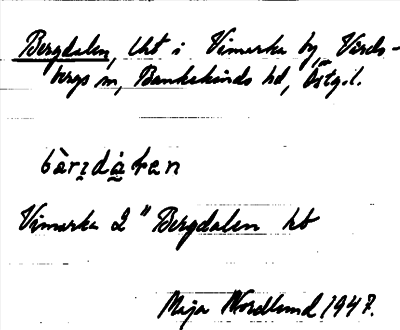 Bergdalen, lht i Vimarka by, Vårds-
bergs sn, Bankekinds hd, Östg.l.
bàrɪdȧ̀ƚan
Vimarka 2 " Bergdalen ht
Maja Nordlund 1947.